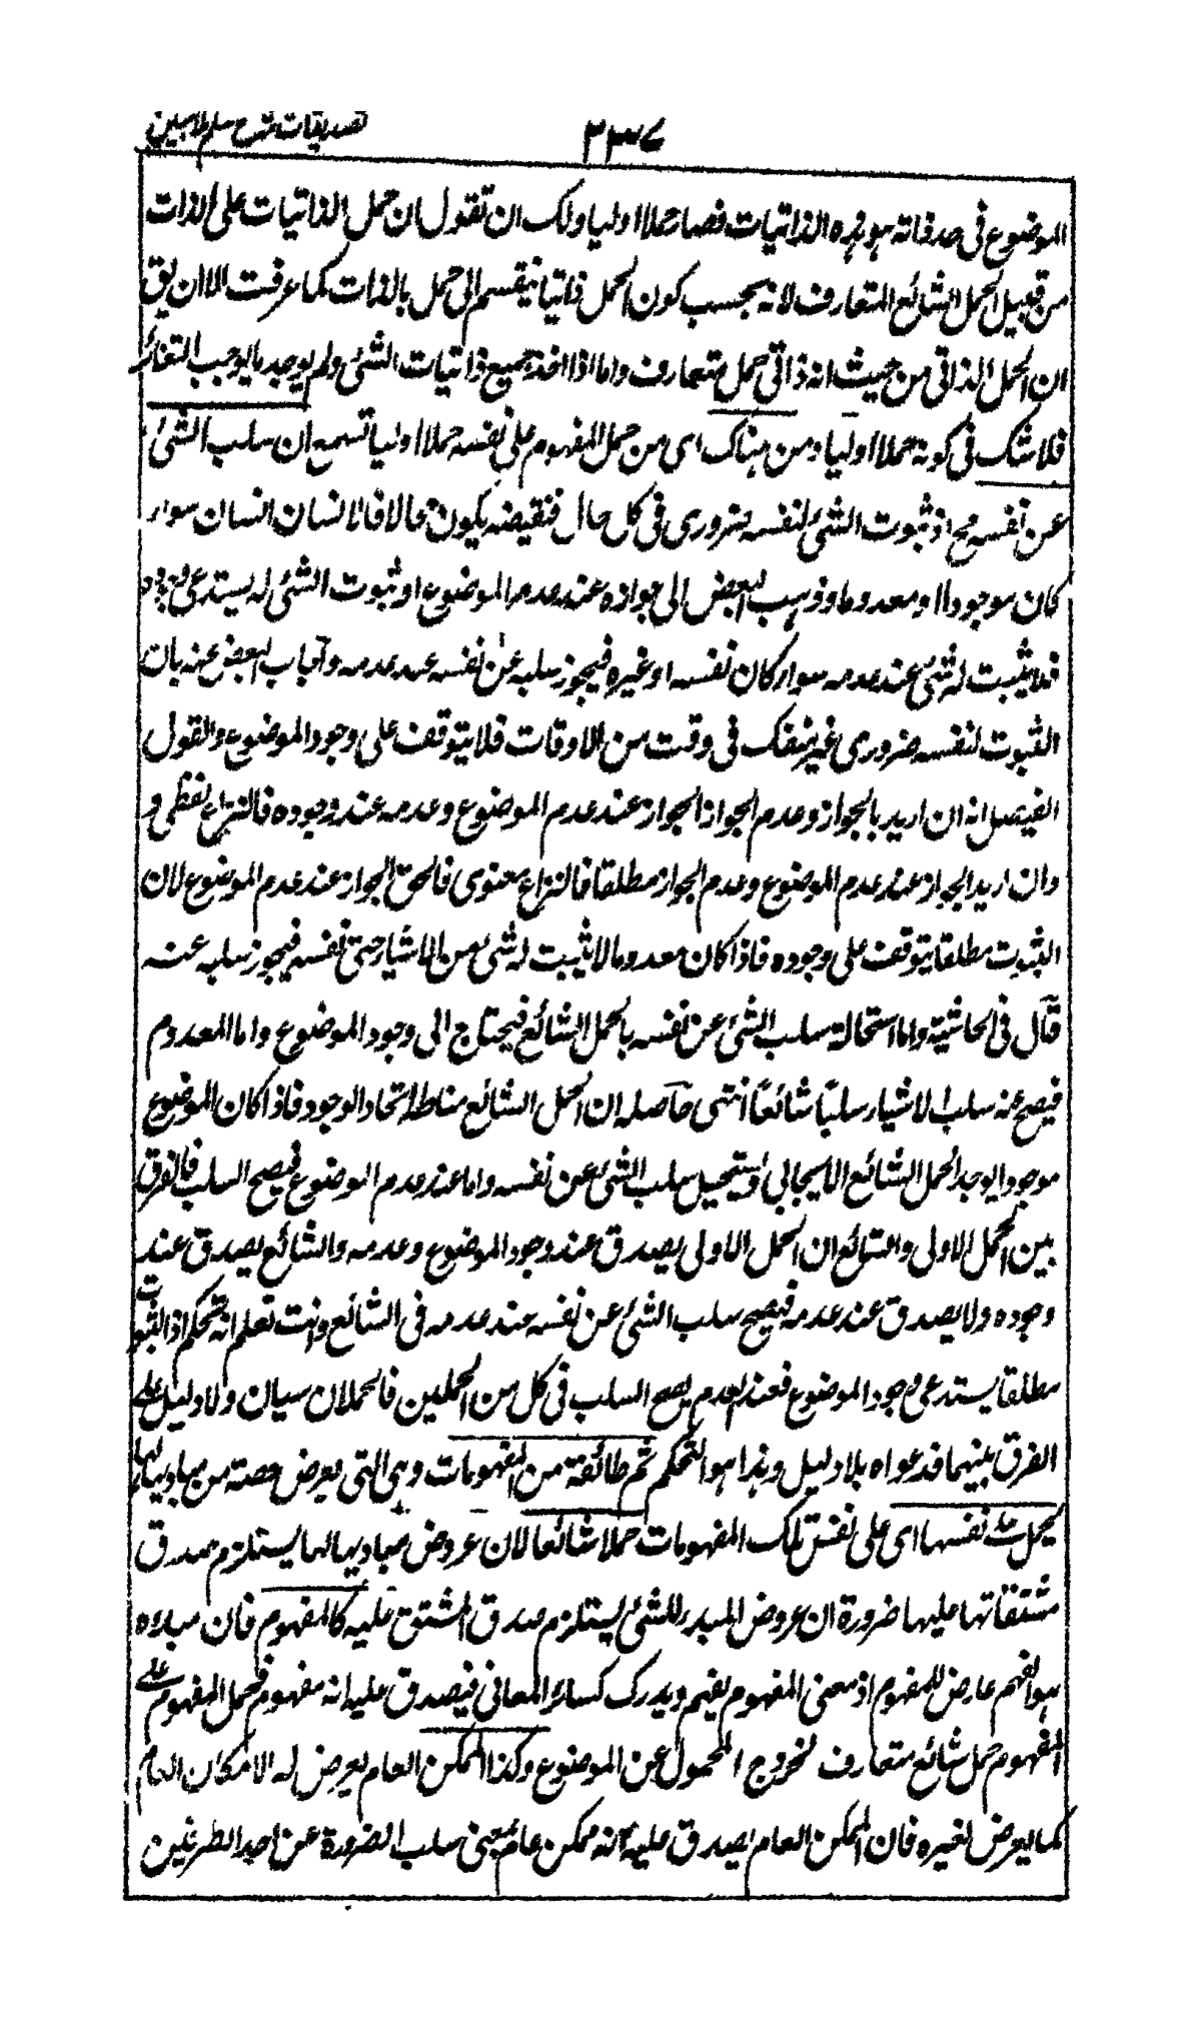 تصدیقات شرح سلم ملا مبین
٣٣٧
الموضوع فی صدقاته هو هذه الذاتیات فصار حملا اولیا ولک ان تقول ان حمل الذاتیات علی الذات
من قبیل الحمل الشائع المتعارف لانه بحسب کون الحمل ذاتیا ینقسم الی حمل بالذات کما عرفت الا ان یق
ان الحمل الذاتی من حیث انه ذاتی حمل متعارف واما اذا اخذ جمیع ذاتیات الشئ ولم یوجد ما یوجب التغائر
فلا شک فی کونه حملا اولیا ومن هناک ای من حمل المفهوم علی نفسه حملا اولیا تسمع ان سلب الشئ
عن نفسه مح اذ ثبوت الشئ لنفسه ضروری فی کل حال فنقیضه یکون محالا فالانسان انسان سواء
کان موجودا او معدوما وذهب البعض الی جوازه عند عدم الموضوع اذ ثبوت الشئ له یستدعی وجوده
فلا یثبت له شئ عند عدمه سواء کان نفسه او غیره فیجوز سلبه عن نفسه عند عدمه واجاب البعض عنه بان
الثبوت لنفسه ضروری غیر منفک فی وقت من الاوقات فلا یتوقف علی وجود الموضوع والقول
الفیصل انه ان ارید بالجواز وعدم الجواز الجواز عند عدم الموضوع وعدمه عند وجوده فالنزاع لفظی و
وان ارید الجواز عند عدم الموضوع وعدم الجواز مطلقا فالنزاع معنوی فالحق الجواز عند عدم الموضوع لان
الثبوت مطلقا یتوقف علی وجوده فاذا کان معدوما لا یثبت له شئ من الاشیاء حتی نفسه فیجوز سلبه عنه
قال فی الحاشیة واما استحالة سلب الشئ عن نفسه بالحمل الشائع فیحتاج الی وجود الموضوع واما المعدوم
فیصح عنه سلب الاشیاء سلبا شائعا انتهی حاصله ان الحمل الشائع مناطه اتحاد الوجود فاذا کان الموضوع
موجودا یوجد الحمل الشائع الایجابی ویستحیل سلب الشئ عن نفسه واما عند عدم الموضوع فیصح السلب فالفرق
بین الحمل الاولی والشائع ان الحمل الاولی یصدق عند وجود الموضوع وعدمه والشائع یصدق عند
وجوده ولا یصدق عند عدمه فیصح سلب الشئ عن نفسه عند عدمه فی الشائع وانت تعلم انه تحکم اذ الثبوت
مطلقا یستدعی وجود الموضوع فعند العدم یصح السلب فی کل من الحملین فالحملان سیان ولا دلیل علی
الفرق بینهما فدعواه بلا دلیل وهذا هو التحکم ثم طائفة من المفهومات وهی التی یعرض حصة من مبادیها لها
یحمل علی نفسها ای علی نفس تلک المفهومات حملا شائعا لان عروض مبادیها لها یستلزم صدق
مشتقاتها علیها ضرورة ان عروض المبدء للشئ یستلزم صدق المشتق علیه کالمفهوم فان مبدءه
هو الفهم عارض للمفهوم اذ معنی المفهوم یفهم ویدرک کسائر المعانی فیصدق علیه انه مفهوم فحمل المفهوم علی
المفهوم حمل شائع متعارف لخروج المحمول عن الموضوع وکذا الممکن العام یعرض له الامکان العام
کما یعرض لغیره فان الممکن العام یصدق علیه انه ممکن عام بمعنی سلب الضرورة عن احد الطرفین